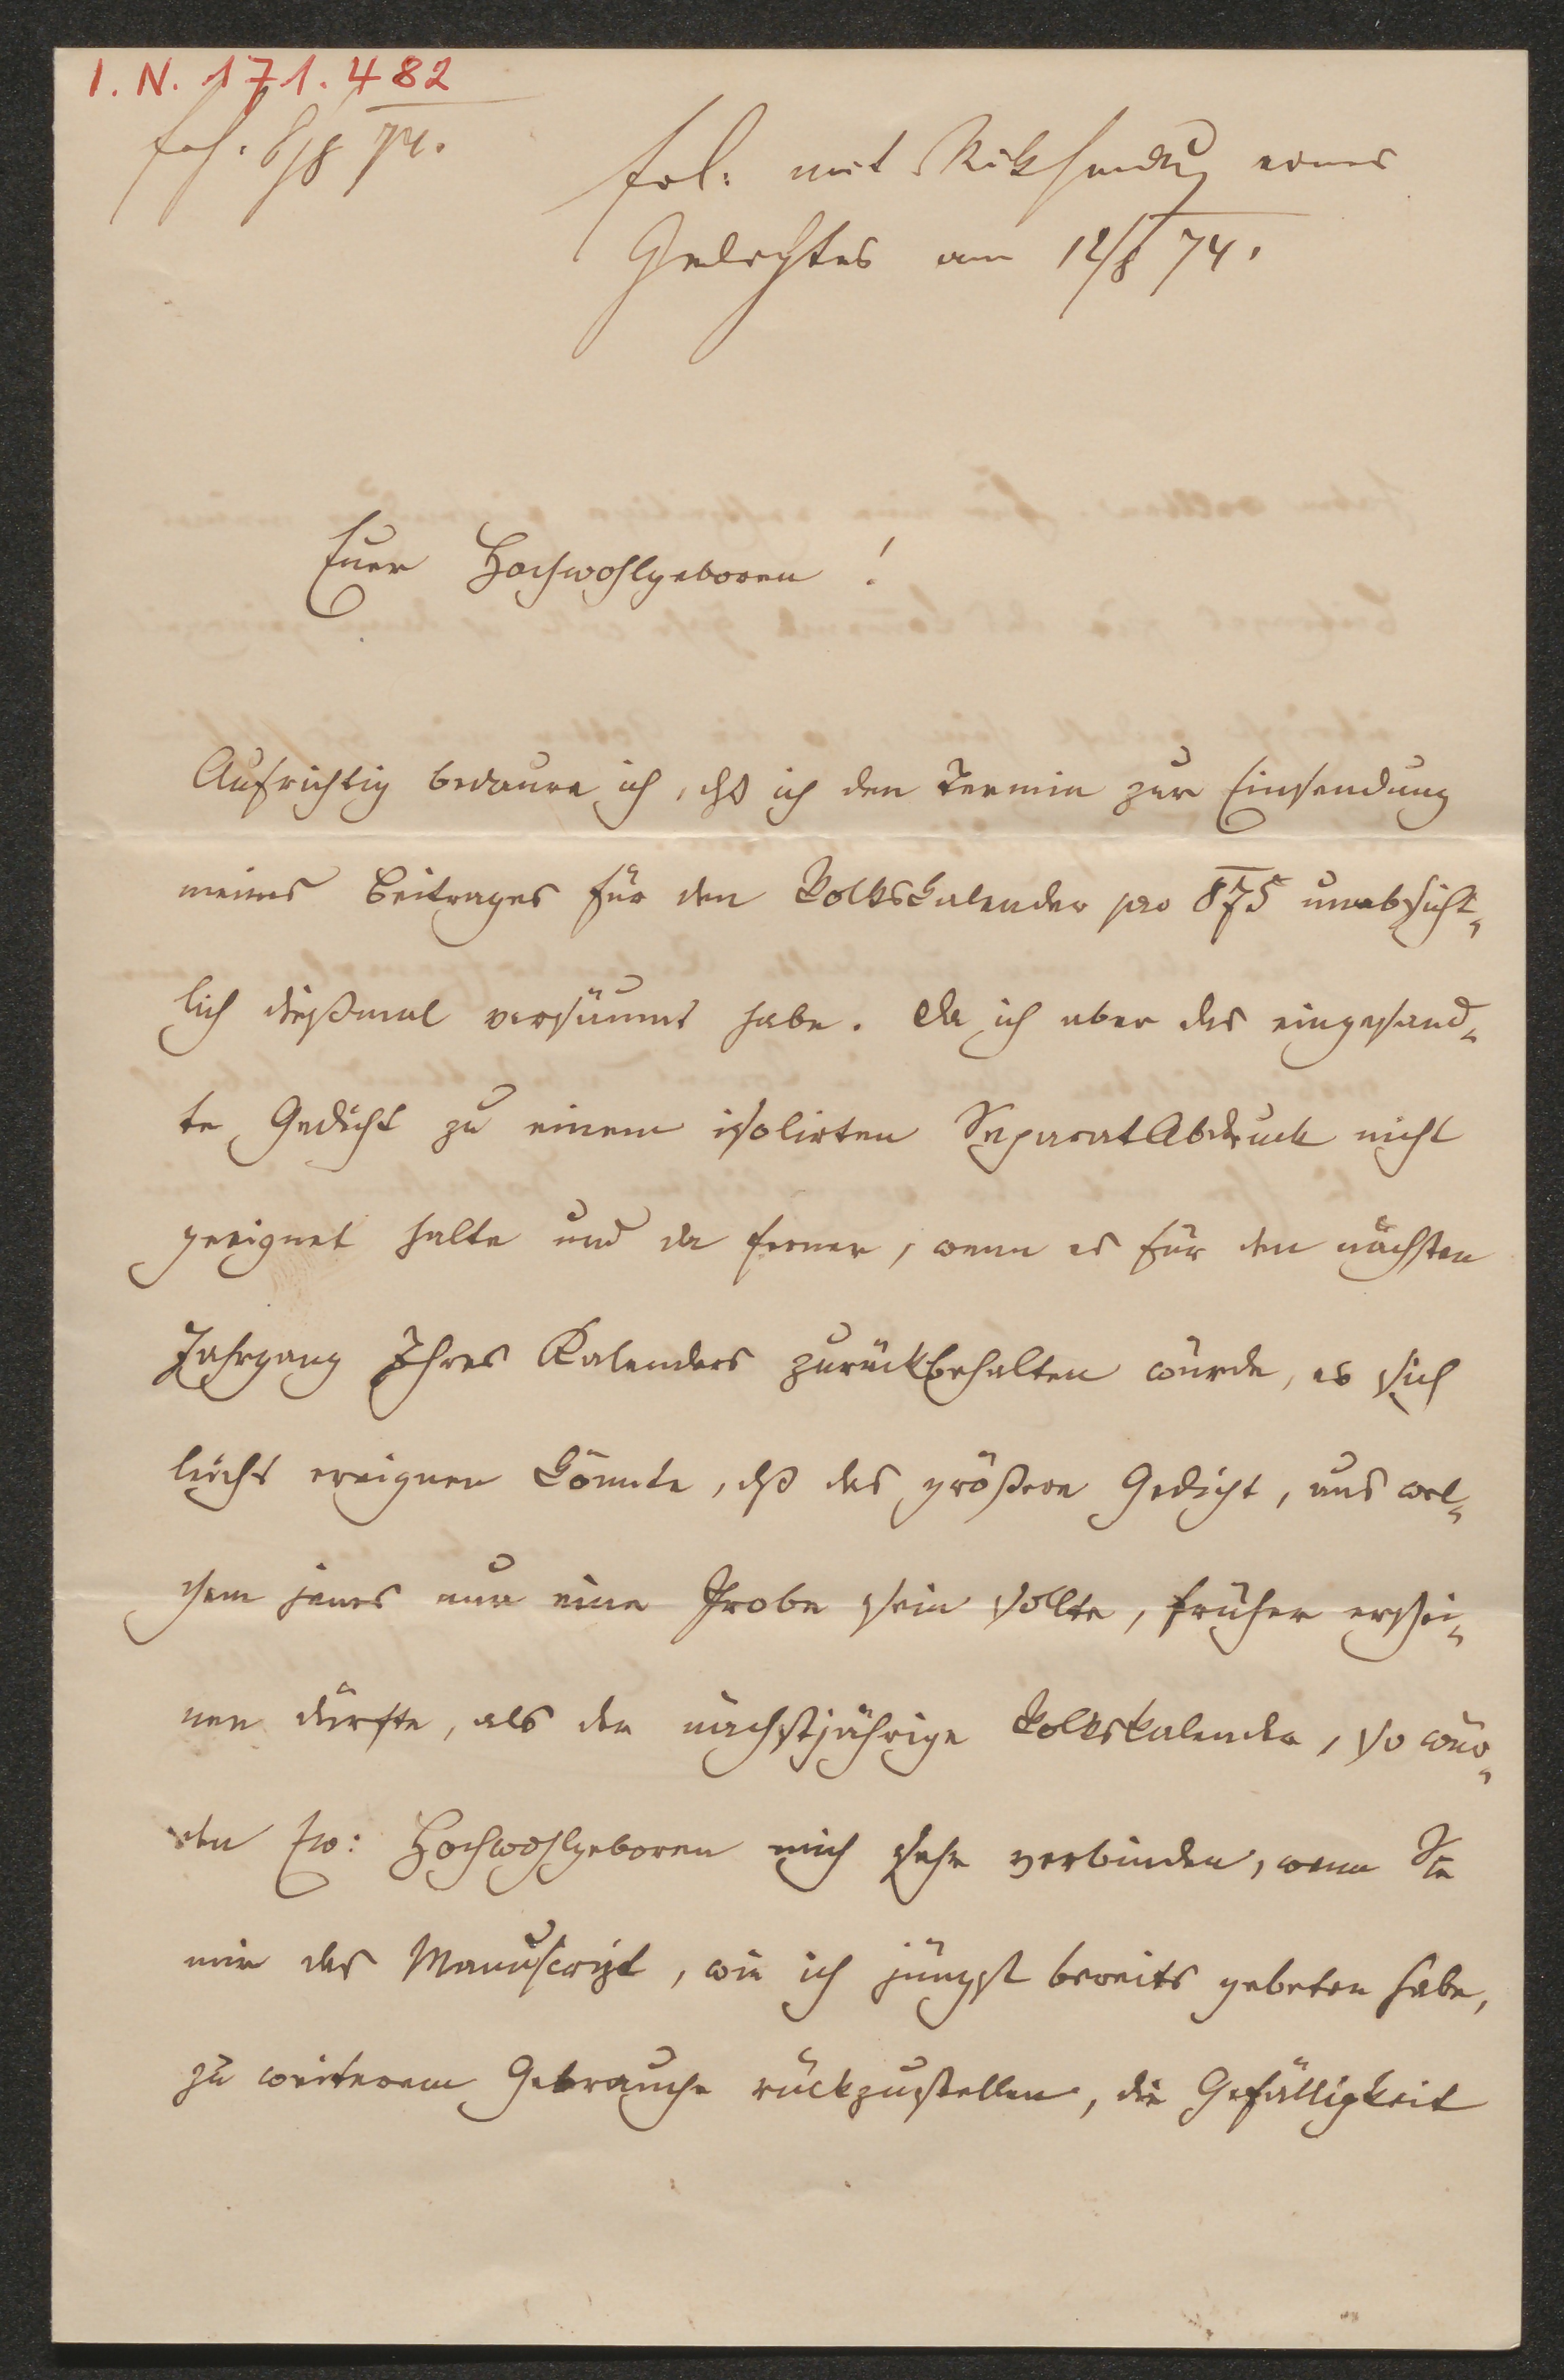 I. N. 171.482
erh. 6/8 74.
erl. mit Rüksendung eines
Gedichtes am 12/8 74.
Euer Hochwohlgeboren!
Aufrichtig bedaure ich, dß ich den Termin zur Einsendung
meines Beitrages für den Volkskalender pro 875 unabsicht-
lich dießmal versäumt habe. Da ich aber das eingesand-
te Gedicht zu einem isolirten SeparatAbdruck nicht
geeignet halte und da ferner, wenn es für den nächsten
Jahrgang Ihres Kalenders zurückbehalten würde, es sich
leicht ereignen könnte, dß das größere Gedicht, aus wel-
chem jenes nur eine Probe sein sollte, früher erschei-
nen dürfte, als der nächstjährige Volkskalender, so wür-
den Ew: Hochwohlgeboren mich sehr verbinden, wenn Sie
mir das Manuscript, wie ich jüngst bereits gebeten habe,
zu weiterem Gebrauche rückzustellen, die Gefälligkeit